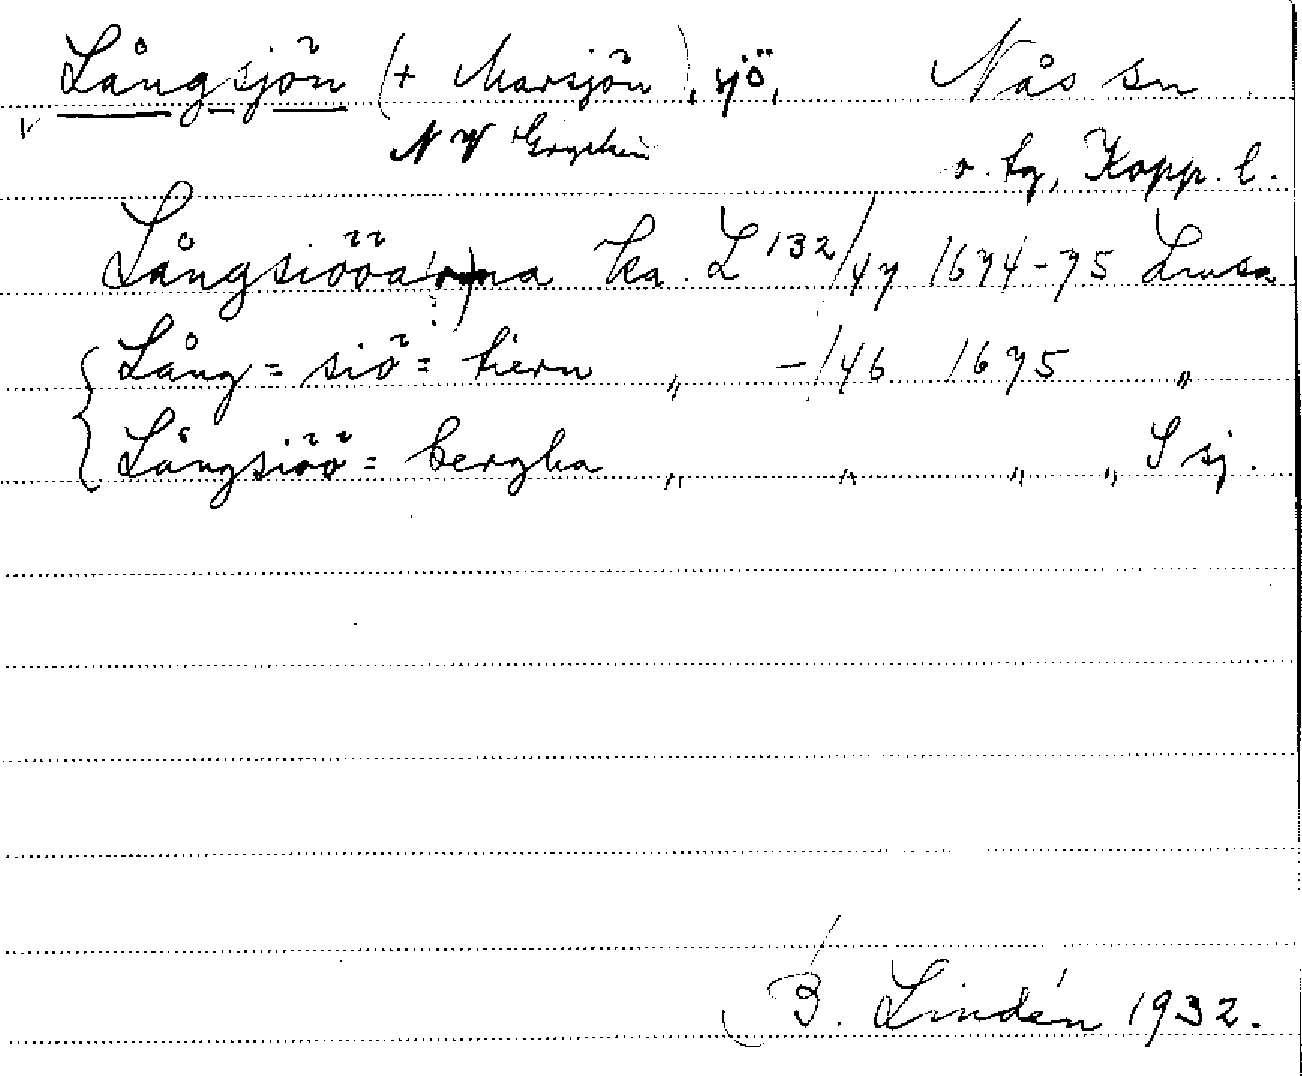 Långsjön (+ Marsjön), sjö, Nås sn
NV o. tg, Kopp. l.
Långsiööarna ka. L 132/47 1674-75
{ Lång = siö = tiern „ -/46 1675 „
{ Långsiöö = bergha „ „ „ „ S sj.
B. Lindén 1932.